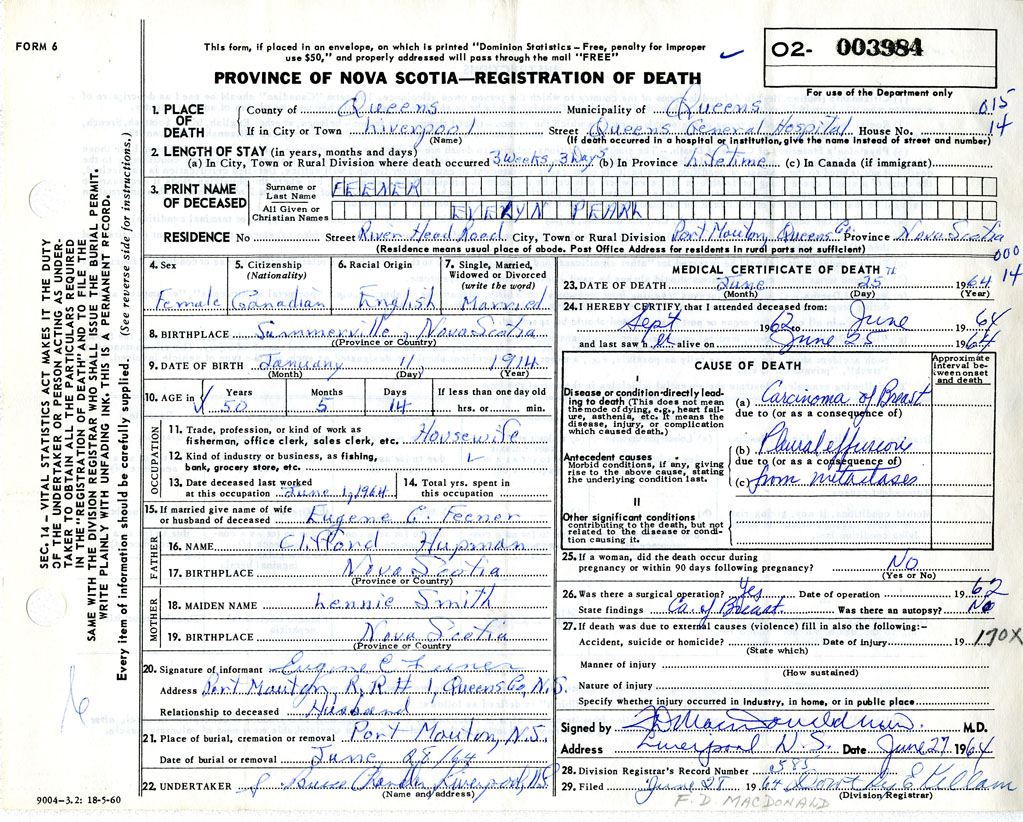 FORM 6
This form, if placed in an envelope, on which is printed "Dominion Statistics – Free, penalty for improper
use $50," and properly addressed will pass through the mail "FREE"
02- 003984
For use of the Department only
PROVINCE OF NOVA SCOTIA—REGISTRATION OF DEATH
015
14
1. PLACE OF DEATH County of Queens Municipality of Queens
If in City or Town Liverpool Street Queens General Hospital House No.
(Name) (If death occurred in a hospital or institution, give the name instead of street and number)
2. LENGTH OF STAY (in years, months and days)
(a) In City, Town or Rural Division where death occurred 3 weeks, 3 Days (b) In Province Lifetime (c) In Canada (if immigrant)
3. PRINT NAME OF DECEASED
Surname or Last Name FEENER
All Given or Christian Names EVELYN PEARL
RESIDENCE No Street River Head Road City, Town or Rural Division Port Mouton, Queens Co. Province Nova Scotia
(Residence means usual place of abode. Post Office Address for residents in rural parts not sufficient)
000
14
4. Sex Female
5. Citizenship (Nationality) Canadian
6. Racial Origin English
7. Single, Married, Widowed or Divorced (write the word) Married
8. BIRTHPLACE Summerville, Nova Scotia
(Province or Country)
9. DATE OF BIRTH January 11 1914
(Month) (Day) (Year)
10. AGE in Years Months Days If less than one day old
50 5 14 hrs. or min.
OCCUPATION
11. Trade, profession, or kind of work as
fisherman, office clerk, sales clerk, etc. Housewife
12. Kind of industry or business, as fishing,
bank, grocery store, etc.
13. Date deceased last worked
at this occupation June 1, 1964
14. Total yrs. spent in
this occupation
15. If married give name of wife
or husband of deceased Eugene C. Feener
FATHER
16. NAME Clifford Hupman
17. BIRTHPLACE Nova Scotia
(Province or Country)
MOTHER
18. MAIDEN NAME Lennie Smith
19. BIRTHPLACE Nova Scotia
(Province or Country
20. Signature of informant Eugene C Feener
Address Port Mouton, R.R # 1, Queens Co, N.S.
Relationship to deceased Husband
21. Place of burial, cremation or removal Port Mouton, N.S.
Date of burial or removal June 28/64
22. UNDERTAKER Liverpool, N.S.
(Name and address)
MEDICAL CERTIFICATE OF DEATH
23. DATE OF DEATH June 25 1964
(Month) (Day) (Year)
24. I HEREBY CERTIFY that I attended deceased from:
Sept 1962 to June 1964
and last saw her alive on June 25 1964
CAUSE OF DEATH
Approximate interval between onset and death
I
Disease or condition directly leading to death (This does not mean
the mode of dying, e.g., heart failure, asthenia, etc. It means the
disease, injury, or complication
which caused death.)
(a) Carcinoma of Breast
due to (or as a consequence of)
Antecedent causes
Morbid conditions, if any, giving
rise to the above cause, stating
the underlying condition last.
(b) Plural effusion
due to (or as a consequence of)
(c) from metastases
II
Other significant conditions
contributing to the death, but not
related to the disease or condition causing it.
25. If a woman, did the death occur during
pregnancy or within 90 days following pregnancy? No
(Yes or No)
26. Was there a surgical operation? Yes Date of operation 1962
State findings Ca. of Breast Was there an autopsy? No
27. If death was due to external causes (violence) fill in also the following:–
Accident, suicide or homicide? Date of injury 19
(State which)
170X
Manner of injury
(How sustained)
Nature of injury
Specify whether injury occurred in industry, in home, or in public place
Signed by M.D.
Address Liverpool N.S. Date June 27 1964
28. Division Registrar's Record Number
29. Filed June 28 1964 E Killam
(Division Registrar)
F. D. MACDONALD
SEC. 14 – VITAL STATISTICS ACT MAKES IT THE DUTY
OF THE UNDERTAKER OR PERSON ACTING AS UNDERTAKER TO OBTAIN ALL THE PARTICULARS REQUIRED
IN THE "REGISTRATION OF DEATH" AND TO FILE THE
SAME WITH THE DIVISION REGISTRAR WHO SHALL ISSUE THE BURIAL PERMIT.
WRITE PLAINLY WITH UNFADING INK. THIS IS A PERMANENT RECORD.
Every item of information should be carefully supplied. (See reverse side for instructions.)
9004–3.2: 18-5-60